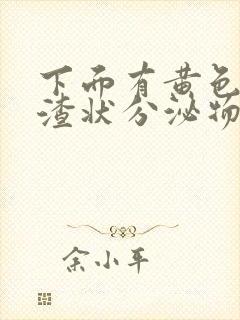 下而有黄色
渣状分泌物
余小平